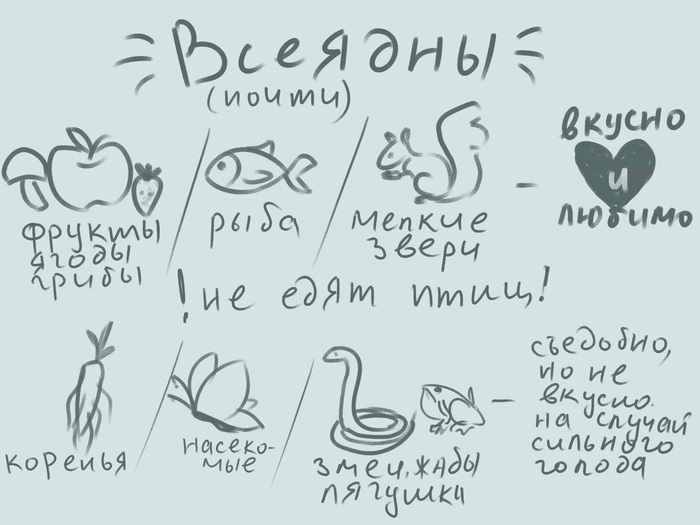 Всеядны
(почти)
фрукты
ягоды
грибы
рыба
мелкие
звери
—
вкусно
и
любимо
!не едят птиц!
коренья
насеко-
мые
змеи, жабы
лягушки
—
съедобно,
но не
вкусно.
на случай
сильного
голода